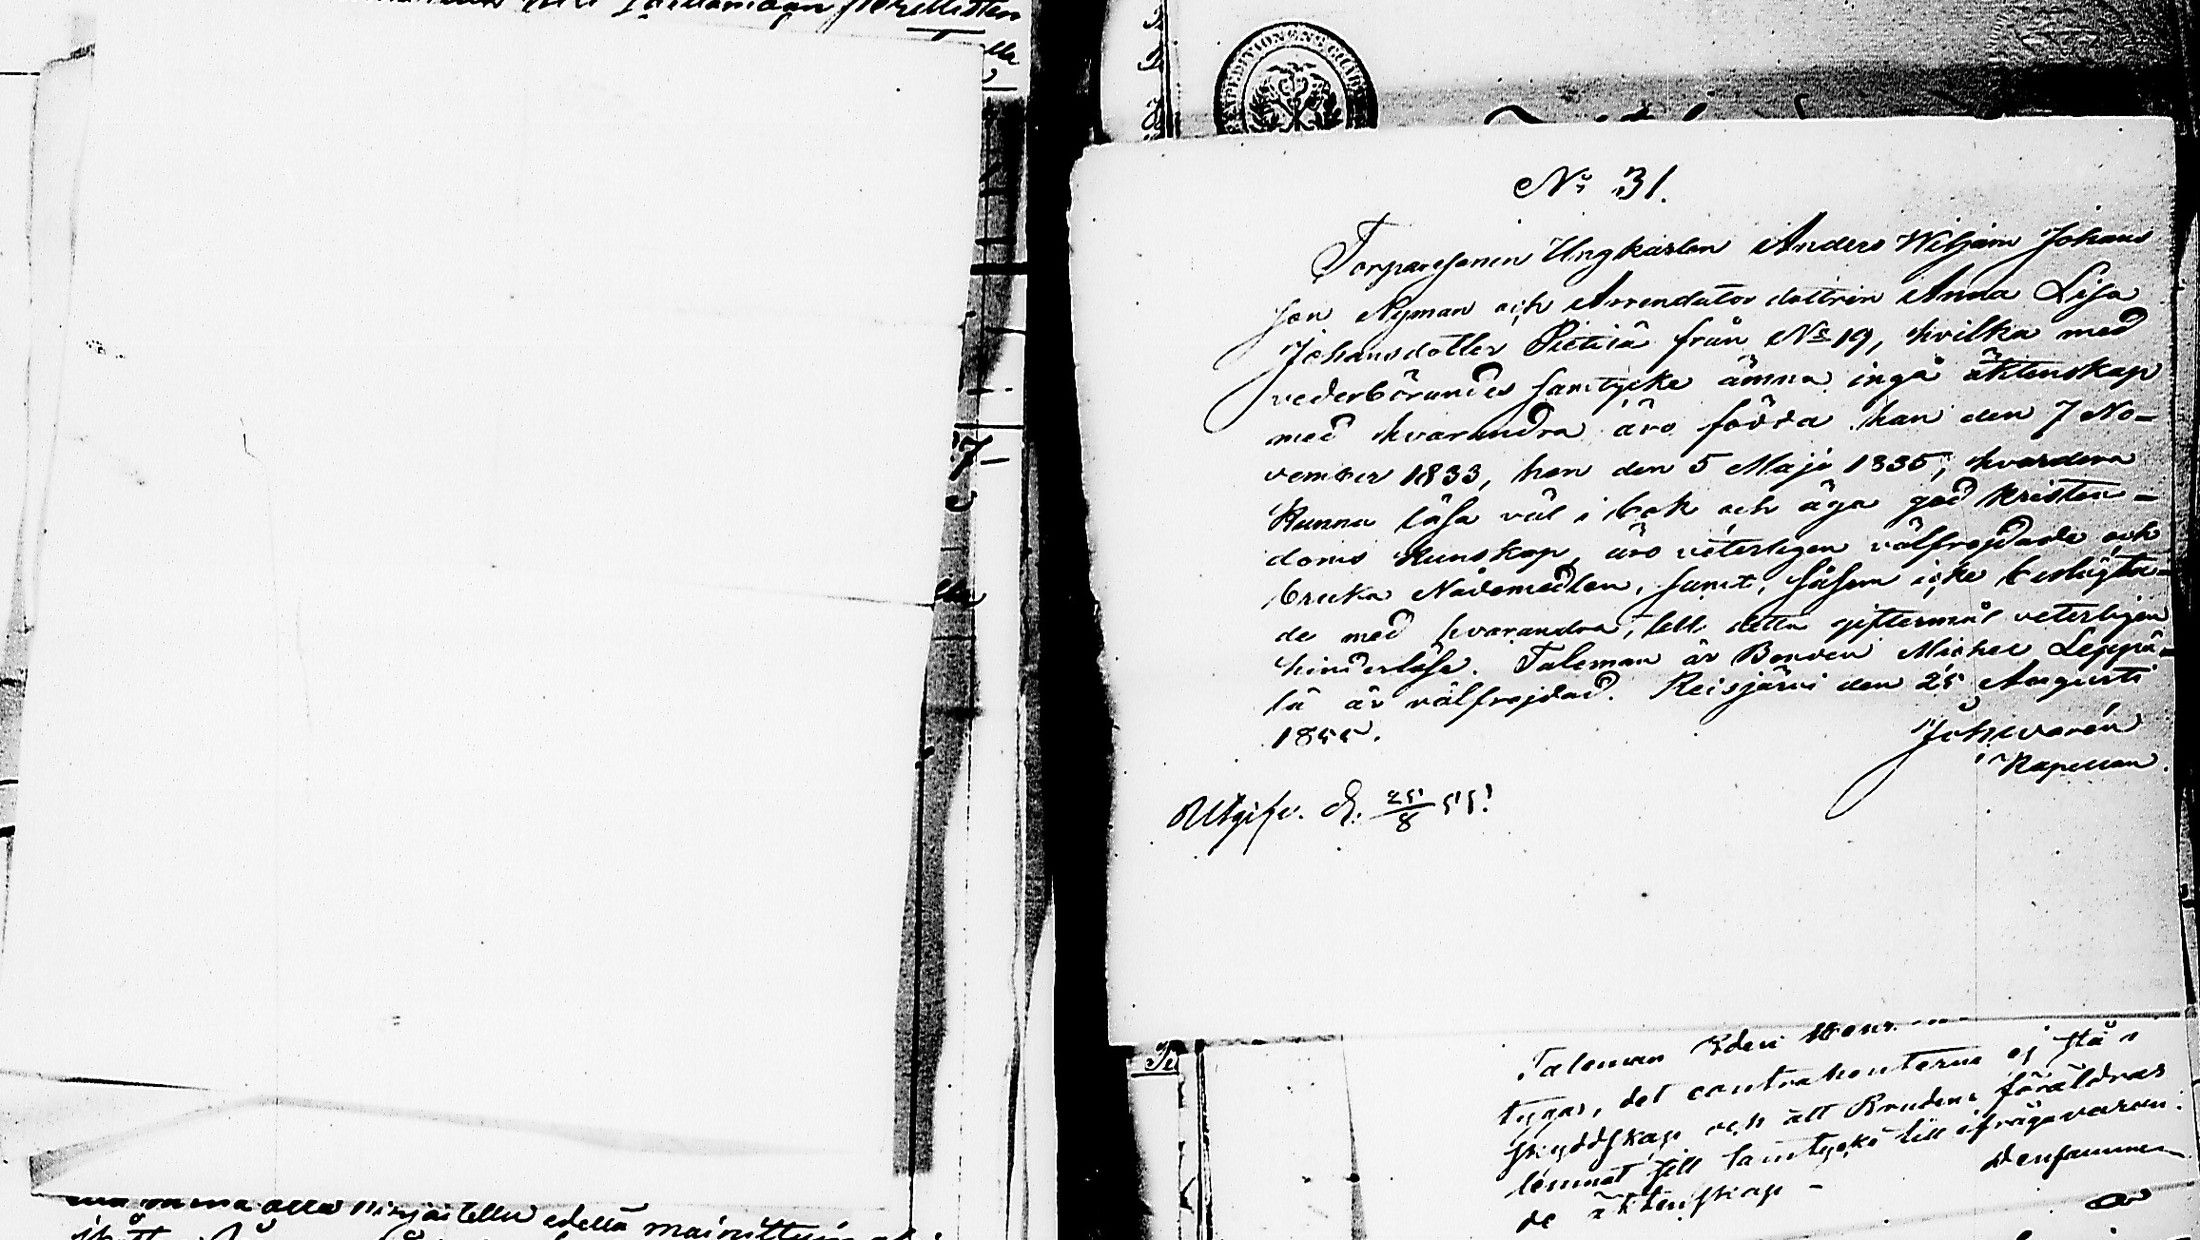 N:o 31.
Torparesonen Ungkarlen Anders Wiljam Johans
son Nyman och Arrendators dottren Anna Lisa
Johansdotter Pietilä från No 19, hvilka med
vederbörandes samtycke ämna ingå äktenskap
med hvarandra äro födda han den 7 No-
vember 1833, hon den 5 Maji 1835, hvardera
kunna läsa väl i bok och äga god kristen-
doms kunskap, äro veterligen välfrejdade och
bruka Nådemedlen, samt, såsom icke beslägta-
de med hvarandra, till detta giftermål veterligen
hinderlösa. Taleman är Bonden Michel Leppä-
lä är välfrejdad. Reisjärvi den 25 Augusti
1855.
Kapellan.
Utgifv. d. 25/8 55.
Taleman
tygar, det contrahenterna ej stå i
skyldskap och att Brudens föräldrar
lemnat sitt samtycke till ifrågavaran-
de äktenskap -
Densamme
edellä